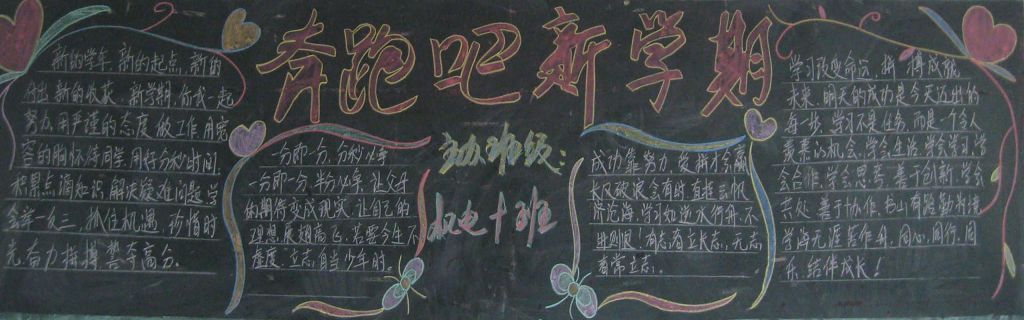 奔跑吧新学期
新的学年 新的起点 新的
付出 新的收获 新学期,你我一起
努力,用严谨的态度做工作,用宽
容的胸怀待同学,用好分秒时间
积累点滴知识,解决疑难问题,学
会举一反三,抓住机遇,珍惜时
光,奋力拼搏,誓夺高分.
一分耶一分,分秒必争
一分耶一分,半分必争,让父母
的期待变成现实,让自己的
理想展翅高飞,若要今生不
虚度,立志自当少年时.
主办班级:
机电十班
成功靠努力 爱拼才会赢
长风破浪会有时,直挂云帆
济沧海,学习如逆水行舟,不
进则退!有志者立长志,无志
者常立志.
学习改变命运 拼搏成就
未来,明天的成功是今天迈出的
每一步,学习不是任务,而是一个令人
羡慕的机会,学会生活,学会学习,学
会合作,学会思考,善于创新,学会
共处,善于协作,书山有路勤为径
学海无涯苦作舟,同心,同行,同
乐,结伴成长!